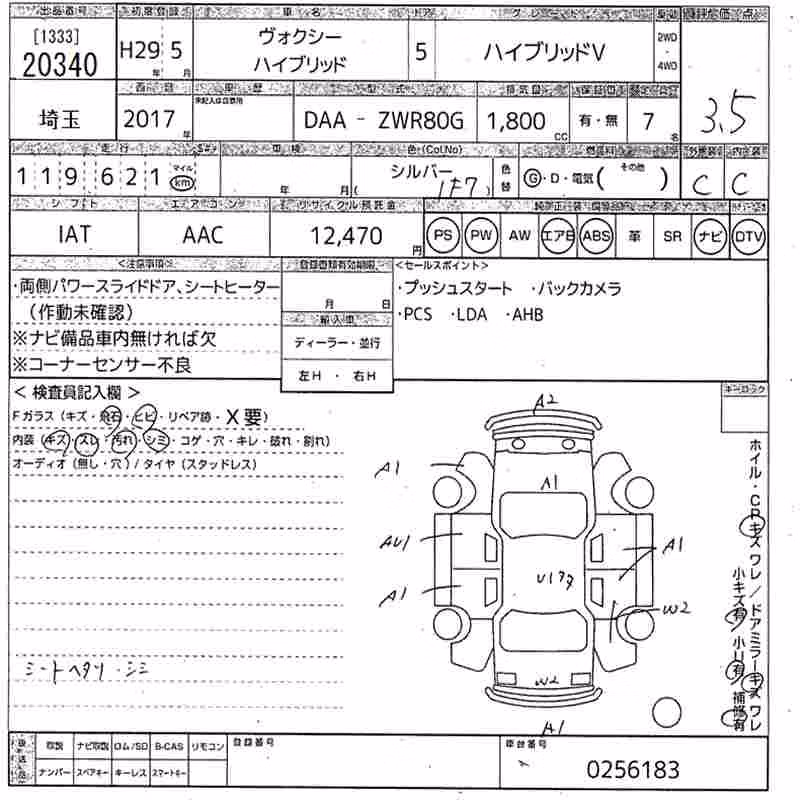 出品番号 初度登録 車名 ドア グレード 駆動 評価(点)
[1333]
20340
H29年 5月
ヴォクシー
ハイブリッド
5
ハイブリッドV
2WD
・
4WD
3.5
西暦 車歴 型式 排気量 定員
未記入は自家用
埼玉
2017年
DAA - ZWR80G
1,800 CC
有・無
7名
走行 車検 色(Col.No) 燃料 外装 内装
119621 マイル km
年 月
シルバー
(1F7)
色替
G・D・電気(その他 )
C C
シフト エアコン リサイクル預託金
IAT
AAC
12,470円
PS PW AW エアB ABS 革 SR ナビ DTV
<注意事項>
・両側パワースライドドア、シートヒーター
(作動未確認)
※ナビ備品車内無ければ欠
※コーナーセンサー不良
登録書類有効期限
月 日
輸入車
ディーラー・並行
左H ・ 右H
<セールスポイント>
・プッシュスタート ・バックカメラ
・PCS ・LDA ・AHB
＜検査員記入欄＞
Fガラス(キズ・飛石・ヒビ・リペア跡・X要)
内装(キズ・スレ・汚れ・シミ・コゲ・穴・キレ・破れ・割れ)
オーディオ(無し・穴)/タイヤ(スタッドレス)
シートヘタリ・シミ
キーロック
A2
A1
A1
AU1
A1
A1
U1
W2
W2
A1
ホイル・CPキズ ワレ/ドアミラーキズ ワレ
小キズ有 小U有 補修有
後送品
取説 ナビ取説 ロム/SD B-CAS リモコン
ナンバー スペアキー キーレス スマートキー
登録番号
車台番号
0256183